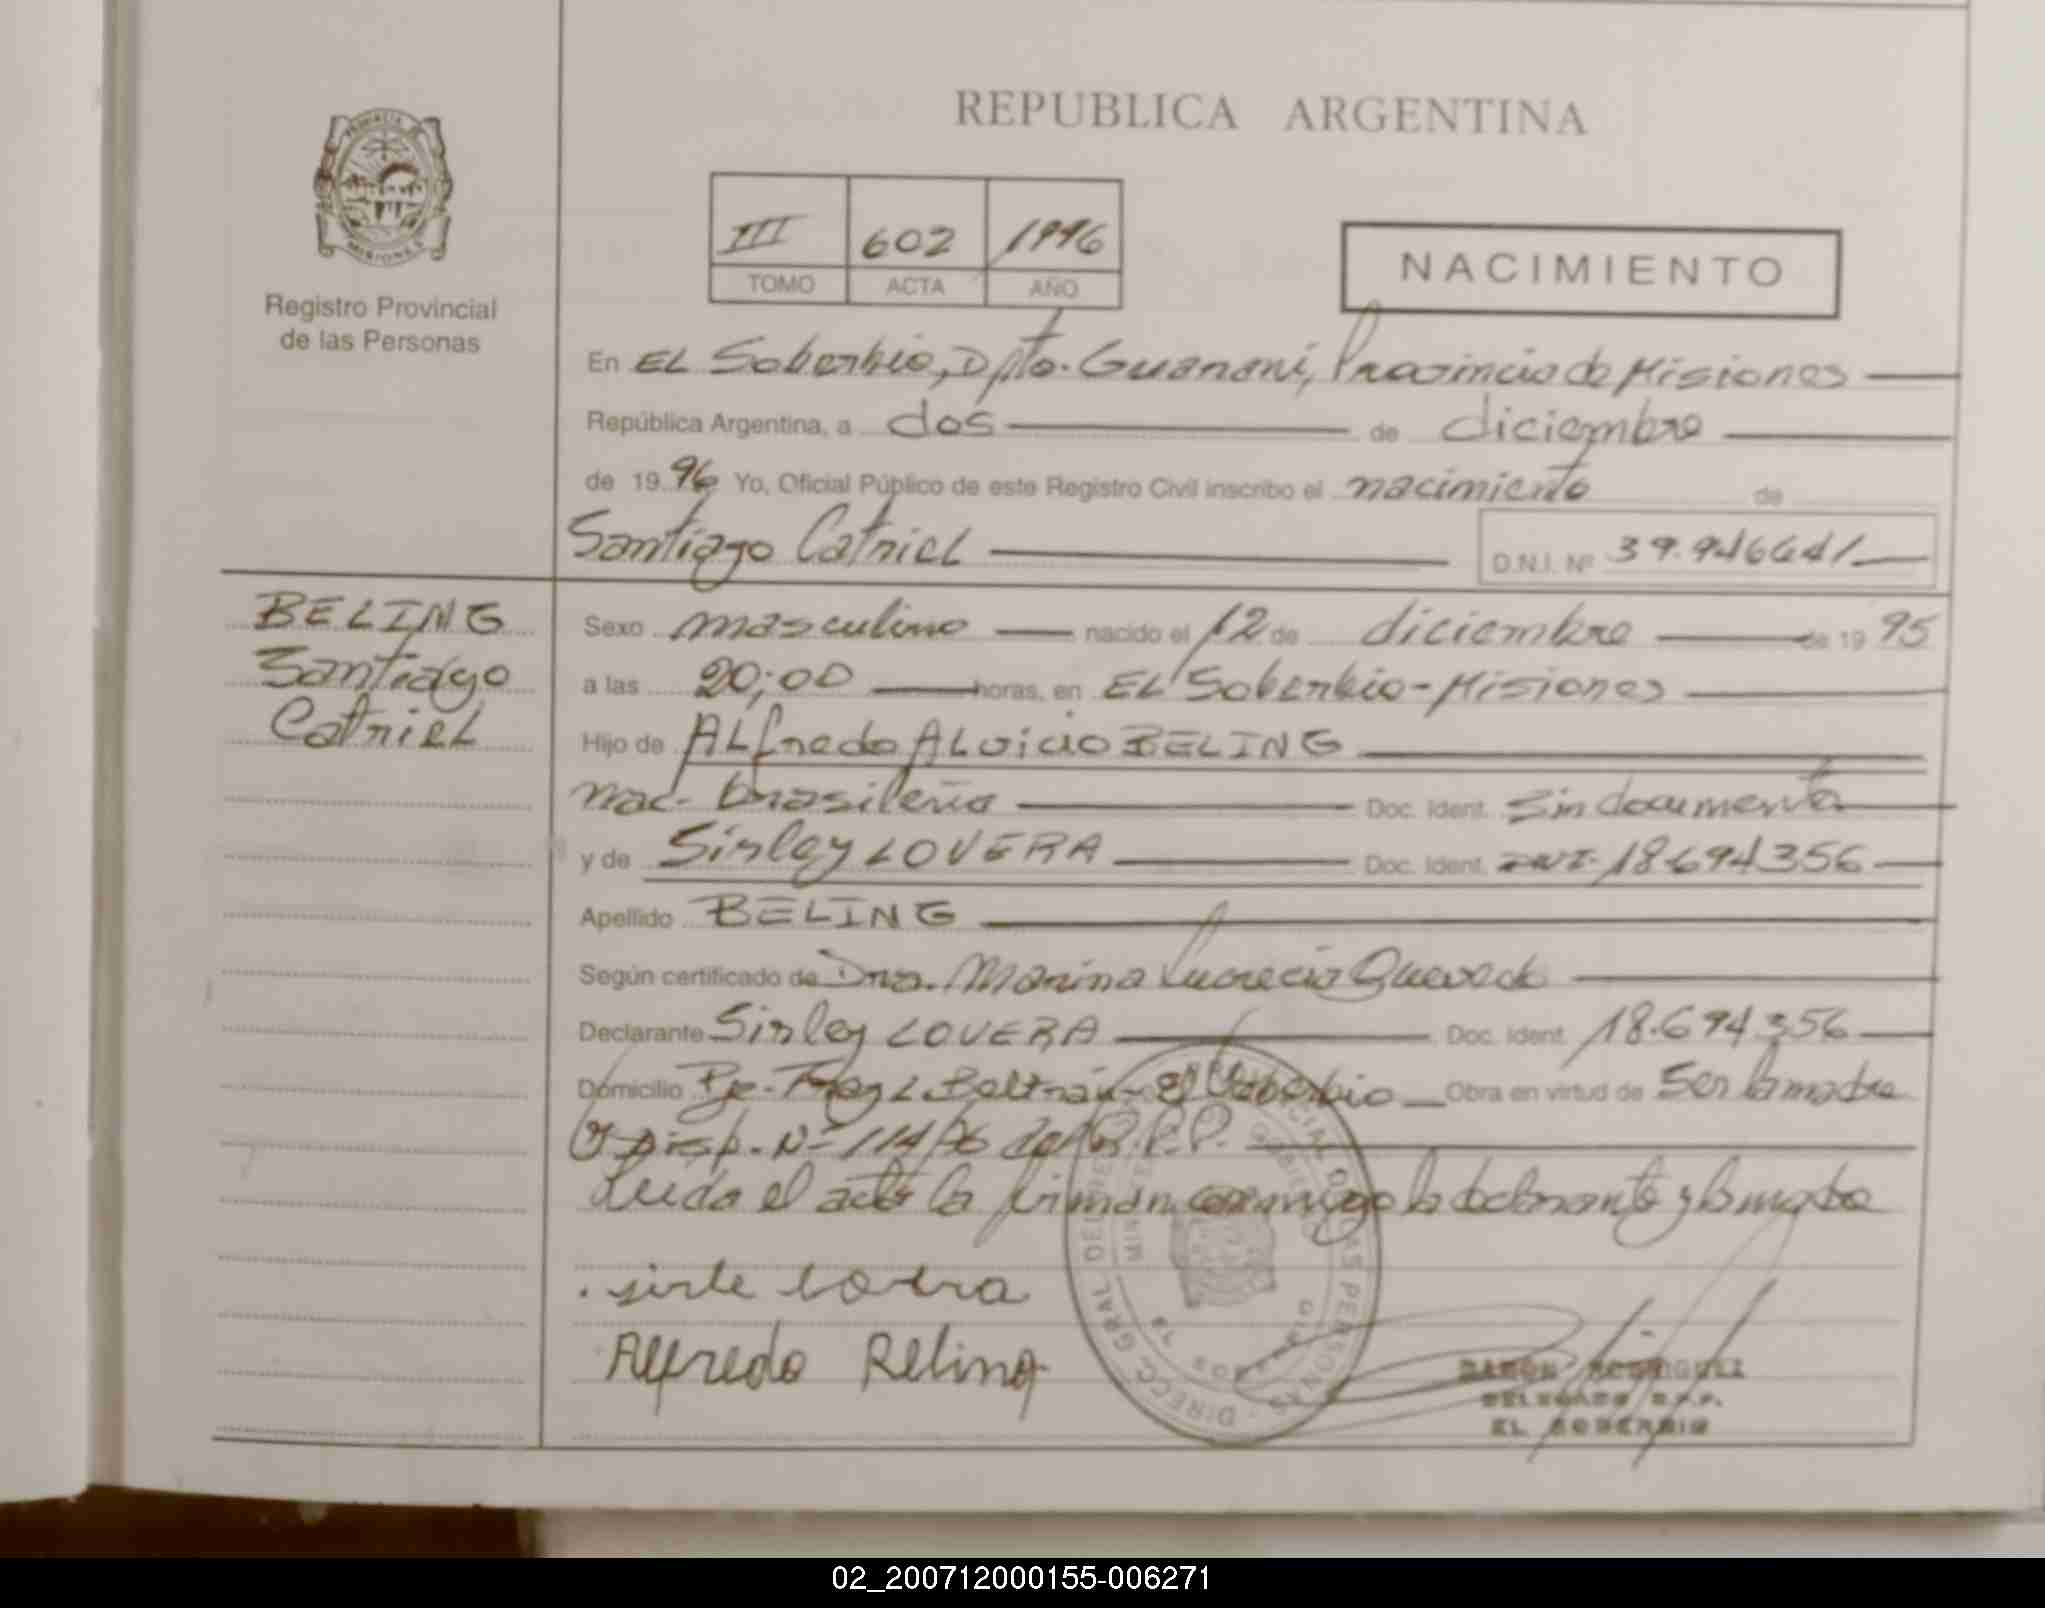 REPUBLICA ARGENTINA
PROVINCIA DE
MISIONES
Registro Provincial
de las Personas
III 602 1996
TOMO ACTA AÑO
NACIMIENTO
En EL Soberbio, Dpto. Guaraní, Provincia de Misiones
República Argentina, a dos de diciembre
de 1996 Yo, Oficial Público de este Registro Civil inscribo el nacimiento de
Santiago Catriel D.N.I. Nº 39.946641
BELING
Santiago
Catriel
Sexo masculino nacido el 12 de diciembre de 1995
a las 20;00 horas, en EL Soberbio-Misiones
Hijo de ALfredo ALoicio BELING
nac. brasileña Doc. Ident. Sin documento
y de Sirley LOVERA Doc. Ident. DNI-18.694356
Apellido BELING
Según certificado de Dra. Marina Lucrecia Quevedo
Declarante Sirley LOVERA Doc. Ident. 18.694.356
Domicilio Pje- Fray L Beltrán- El Soberbio Obra en virtud de Ser la madre
y Disp. Nº 114/96 R.P.P.
Leida el acta la firman conmigo la declarante y la madre
sirle lovera
Alfredo Beling
DIRECC. GRAL DEL REGISTRO PROVINCIAL DE LAS PERSONAS
RAMON RODRIGUEZ
DELEGADO R.P.P.
EL SOBERBIO
02_200712000155-006271